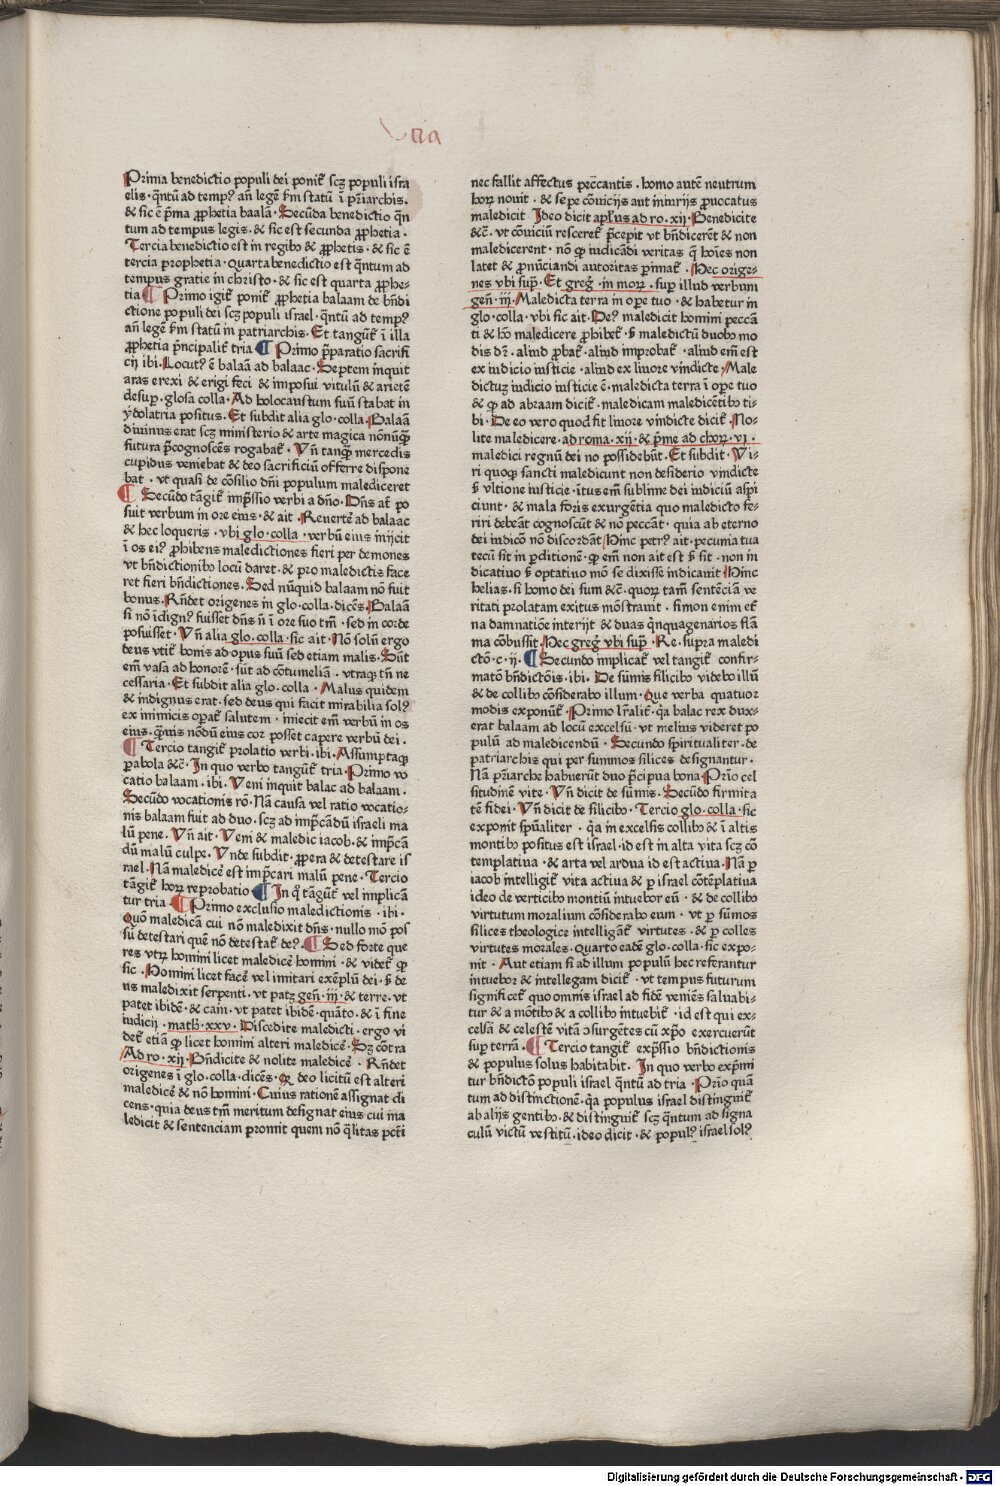 Prima benedictio populi dei ponit᷑ scꝫ populi isra
elis · q̄ntū ad tempꝰ an̄ legē ẜm statū ī pr̄iarchis.
& sic ē p̄ma ꝓphetia baalā · Secūda benedictio q̄n
tum ad tempus legis · & sic est secunda ꝓphetia ·
Tercia benedictio est in regibꝰ & ꝓphetis · & sic ē
tercia prophetia · Quarta benedictio est q̄ntum ad
tempus gratie in christo · & sic est quarta ꝓphe-
tia ¶ Primo igit᷑ ponit᷑ ꝓphetia balaam de bn̄di
ctione populi dei scꝫ populi israel · q̄ntū ad tempꝰ
an̄ legē ẜm statū in patriarchis. Et tangūt᷑ ī illa
ꝓphetia p̄ncipalit᷑ tria ¶ Primo p̄paratio sacrifi
cij ibi. Locutꝰ ē balaā ad balaac · Septem inquit
aras erexi & erigi feci & imposui vitulū & arietē
desuꝑ. glosa colla · Ad holocaustum suū stabat in
ydolatria positus. Et subdit alia glo · colla. Balaā
diuinus erat scꝫ ministerio & arte magica nōnūq̄ꝫ
futura p̄cognoscēs rogabat᷑ · Vn̄ tanq̄ꝫ mercedis
cupidus veniebat & deo sacrificiū offerre dispone
bat · vt quasi de cōsilio dn̄i populum malediceret
¶ Secūdo tāgit᷑ imp̄ssio verbi a dn̄o. Dn̄s at᷑ po
suit verbum in ore eius · & ait . Reuertē ad balaac
& hec loqueris · vbi glo · colla · verbū eius inijcit
ī os eiꝰ prohibens maledictiones fieri per demones
vt bn̄dictionibꝰ locū daret · & pro maledictis face
ret fieri bn̄dictiones. Sed nūquid balaam nō fuit
bonus. Rn̄det origenes in glo · colla · dicēs. Balaā
si nō īdignꝰ fuisset dn̄s n̄ ī ore suo tm̄ · sed in corde
posuisset · Vn̄ alia glo. colla · sic ait . Nō solū ergo
deus vtit᷑ bonis ad opus suū sed etiam malis. Sūt
em̄ vasa ad honorē · sūt ad cōtumeliā · vtraqꝫ tn̄ ne
cessaria · Et subdit alia glo. colla · Malus quidem
& indignus erat · sed deus qui facit mirabilia solꝰ
ex inimicis operat᷑ salutem · iniecit em̄ verbū in os
eius · q̄mis nōdū eius cor posset capere verbū dei ·
¶ Tercio tangit᷑ prolatio verbi · ibi · Assumptaqꝫ
ꝑabola &c̄ · In quo verbo tangūt᷑ tria · Primo vo
catio balaam · ibi · Veni inquit balac ad balaam ·
Secūdo vocationis rō · Nā causa vel ratio vocatio-
nis balaam fuit ad duo · scꝫ ad imp̄cādū israeli ma
lū pene. Vn̄ ait · Veni & maledic iacob · & imp̄cā
dū malū culpe. Vnde subdit · ꝓpera & detestare is
rael. Nā maledicē est imp̄cari malū pene · Tercio
tāgit᷑ horꝝ reprobatio ¶ In q̄ tāgūt᷑ vel implicā
tur tria · ¶ Primo exclusio maledictionis · ibi ·
Quō maledicā cui nō maledixit dn̄s · nullo mō pos
sū detestari quē nō detestat᷑ deꝰ. ¶ Sed forte que
res vtꝝ homini licet maledicē homini · & videt᷑ ꝙ
sic · Homini licet facē vel imitari exēplū dei · ẜ de
us maledixit serpenti · vt patꝫ gen̄ · iij · & terre · vt
patet ibidē · & cain · vt patet ibidē · quāto · & ī fine
iudicij · math᷑ · xxv · Discedite maledicti · ergo vi
det᷑ etiā ꝙ licet homini alteri maledicē · Sꝫ cōtra
Ad ro · xij · Bn̄dicite & nolite maledicē · Rn̄det
origenes ī glo · colla · dicēs · ꝙ deo licitū est alteri
maledicē & nō homini · Cuius rationē assignat di
cens · quia deus tm̄ meritum designat eius cui ma
ledicit & sentenciam promit quem nō q̄litas pctī
nec fallit affectus peccantis · homo autē neutrum
horꝝ nouit · & sepe cōuicijs aut iniurijs ꝓuocatus
maledicit Ideo dicit apl̄us ad ro · xij · Benedicite
&c̄ · vt cōuiciū resceret᷑ p̄cepit vt bn̄dicerēt & non
maledicerent · nō ꝙ iudicādi veritas q̄ hoīes non
latet & pronūciandi autoritas ꝑimat᷑ · Hec orige-
nes vbi sup̄ · Et greg᷑ · in morꝝ · suꝑ illud verbum
gen̄ · iij · Maledicta terra in oꝑe tuo · & habetur in
glo · colla · vbi sic ait · Deꝰ maledicit homini peccā
ti & hō maledicere prohibet᷑ · ẜ maledictū duobꝰ mo
dis dr̄ · aliud ꝓbat᷑ · aliud improbat᷑ · aliud em̄ est
ex iudicio iusticie · aliud ex liuore vindicte · Male
dictuꝫ iudicio iusticie ē · maledicta terra ī oꝑe tuo
& ꝙ ad abraam dicit᷑ · maledicam maledicētibꝰ ti-
bi · De eo vero quod fit liuore vindicte dicit᷑ · No-
lite maledicere · ad roma · xij · & p̄me ad chorꝝ · vi ·
maledici regnū dei no possidebūt · Et subdit · Vi-
ri quoqꝫ sancti maledicunt non desiderio vindicte
ẜ vltione iusticie · itus em̄ sublime dei iudiciū aspi
ciunt · & mala foris exurgētia quo maledicto fe-
riri debeāt cognoscūt & nō peccāt · quia ab eterno
dei iudicō nō discordāt Hinc petrꝰ ait · pecunia tua
tecū sit in ꝑditionē · ꝙ em̄ non ait est ẜ sit · non in
dicatiuo ẜ optatiuo mō se dixisse indicauit Hinc
helias · si homo dei sum &c̄ · quorꝝ tam̄ sentēciā ve
ritati prolatam exitus mōstrauit · simon enim et᷑
na damnatiōe interijt & duas q̄nquagenarios flā
ma cōbussit · Hec greg᷑ vbi sup̄ · Re · supra maledi
ctō · c · ij · ¶ Secundo implicat᷑ vel tangit᷑ confir-
matō bn̄dictōis · ibi · De sūmis silicibꝰ videbo illū
& de collibꝰ cōsiderabo illum · Que verba quatuor
modis exponūt᷑ · Primo lr̄alit᷑ · q̄a balac rex dux-
erat balaam ad locū excelsū · vt melius videret po
pulū ad maledicendū · Secundo spiritualiter · de
patriarchis qui per summos silices designantur ·
Nā p̄iarche habuerūt duo p̄cipua bona · Prīo cel
situdinē vite · Vn̄ dicit de sūmis. Secūdo firmita
tē fidei · Vn̄ dicit de silicibꝰ · Tercio glo · colla · sic
exponit sp̄ualiter · q̄a in excelsis collibꝰ & ī altis
montibꝰ positus est israel · id est in alta vita scꝫ cō
templatiua · & arta vel ardua id est actiua · Nā ꝑ
iacob intelligit᷑ vita actiua & ꝑ israel cōtēplatiua
ideo de verticibꝰ montiū intuebor eū · & de collibꝰ
virtutum moralium cōsiderabo eum · vt ꝑ sūmos
silices theologice intelligāt᷑ virtutes · & ꝑ colles
virtutes morales · Quarto eadē glo · colla · sic expo-
nit · Aut etiam si ad illum populū hec referantur
intuebor & intellegam dicit᷑ · vt tempus futurum
significet᷑ quo omnis israel ad fidē veniēs saluabi-
tur & a mōtibꝰ & a collibꝰ intuebit᷑ · id est qui ex-
celsā & celestē vitā ↄsurgētes cū xp̄o exercuerūt
suꝑ terrā · ¶ Tercio tangit᷑ exp̄ssio bn̄dictionis
& populus solus habitabit. In quo verbo exp̄mi
tur bn̄dictō populi israel q̄ntū ad tria · Prīo quā
tum ad distinctionē · q̄a populus israel distinguit᷑
ab alijs gentibꝰ · & distinguit᷑ scꝫ q̄ntum ad signa
culū victū vestitū · ideo dicit · & populꝰ israel solꝰ
Digitalisierung gefördert durch die Deutsche Forschungsgemeinschaft - DFG